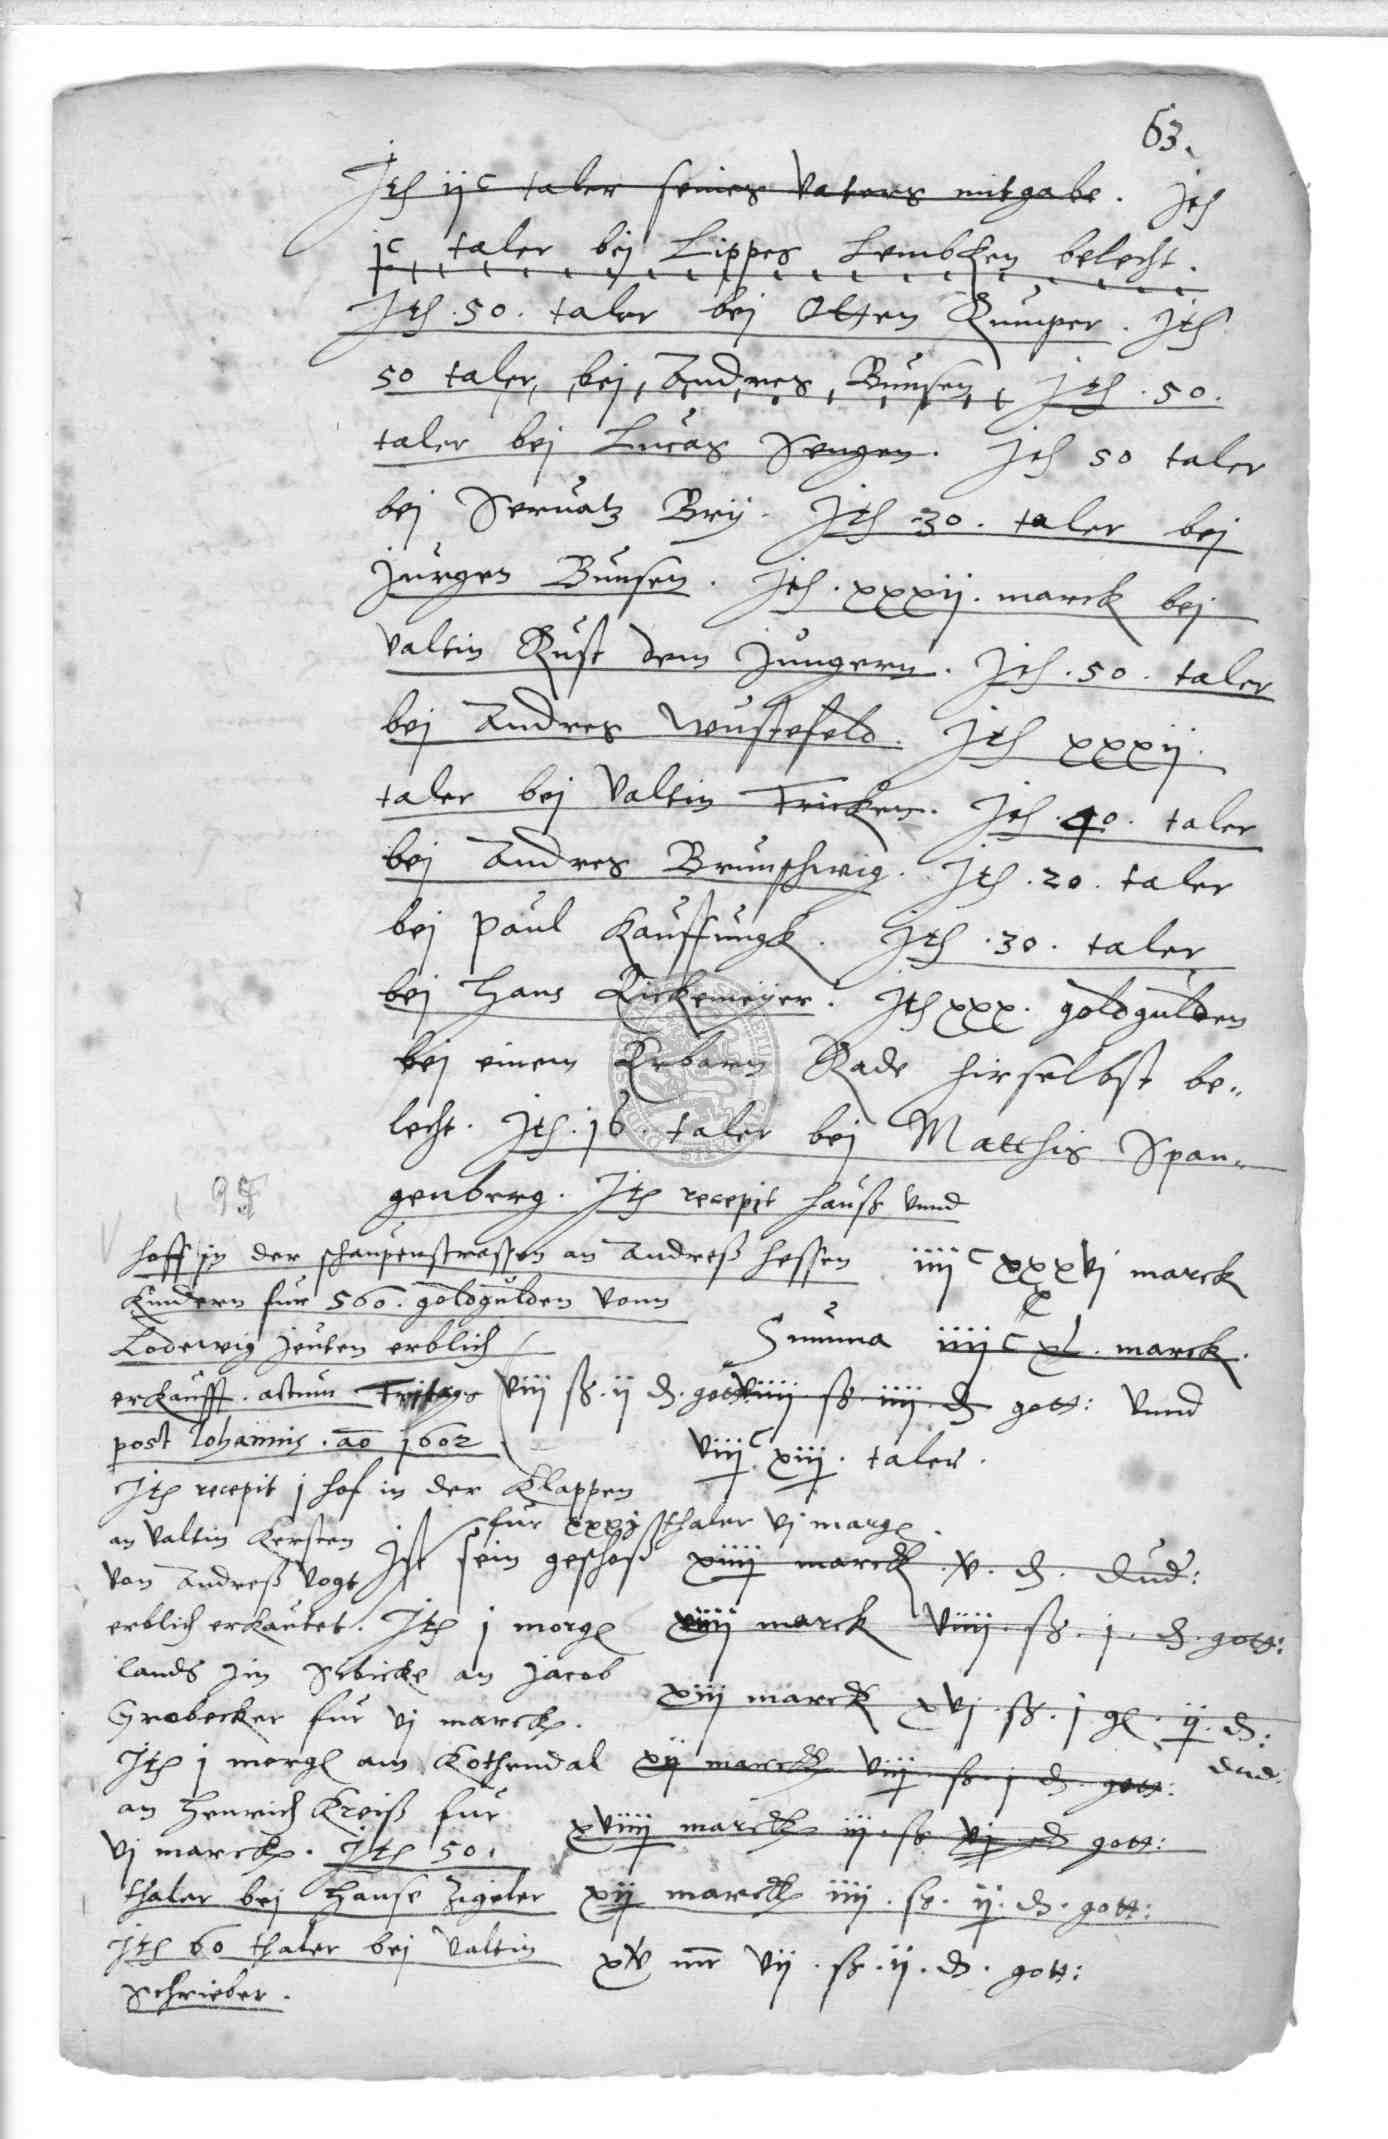 63.
Jtem ijc taler seines vaters mitgabe. Jtem
jc taler bej Lippes Lembken belecht.
Jtem .50. taler bej Otten Rumper. Jtem
50 taler bej Andres Bunsen Jtem .50.
taler bej Lucas Sengen. Jtem 50 taler
bej Servatz Brij. Jtem 30. taler bej
Jurgen Bunsen. Jtem .xxxij. marck bej
Valtin Rust dem Jungern. Jtem .50. taler
bej Andres Wustefeld. Jtem xxxij.
taler bej Valtin Fricken. Jtem .40. taler
bej Andres Brunschwig. Jtem .20. taler
bej Paul Kauffungk. Jtem .30. taler
bej Hans Rickemeijer. Jtem xxx. goldgulden
bej einem Erbarn Rade hirselbst be„
lecht. Jtem .16. taler bej Matthis Span„
genberg. Jtem recepit hauß vnnd
hoff in der schaupenstrassen an Andreß Hessen
Kindern fur 560. goldgulden vonn
Lodewig Jeuten erblich
erkaufft. actum Fritags
post Johannis. ao 1602
Jtem recepit j hof in der Klappen
an Valtin Kersten fur xxxj thaler vj marg
von Andreß Vogt
erblich erkautet. Jtem j morg
lands jm Sebicke an Jacob
Grobecker fur vj marck.
Jtem j morg am Kothendal
an Henrich Kreiß fur
vj marck. Jtem 50.
thaler bej Hanse Zigeler
Jtem 60 thaler bej Valtin
Schrieber.
iiijc xxxvj marck
Summa iiijc xl. marck.
viij ß. ij d. gott: viiij ß. iiij. d gott: vnnd
viiijc xiij. taler.
Jst sein geschoß xiiij marck .v. d. dud:
xiiij marck viiij. ß. j. d. gott:
xiij marck xvj. ß. j g. ij. d: dud:
xij marck viij ß. j d. gott:
xviiij marck iij. ß vj d gott:
xij marck iiij. ß. ij. d. gott:
xv mr vij. ß. ij. d. gott: